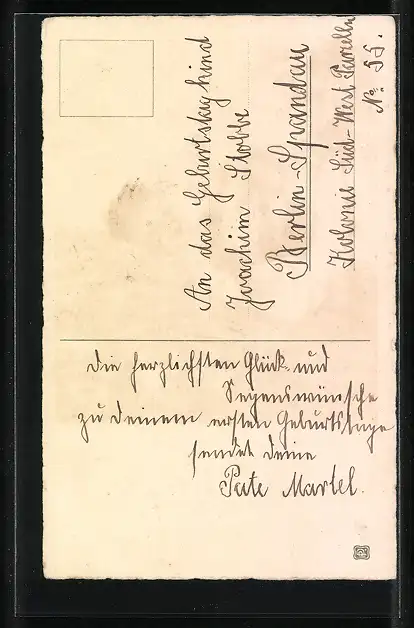 An das Geburtstagskind
Joachim Stobbe
Berlin-Spandau
Kolonie Süd-West Parzelle
No. 55.
die herzlichsten Glück- und
Segenswünsche
zu deinem ersten Geburtstage
sendet deine
Pate Martel.